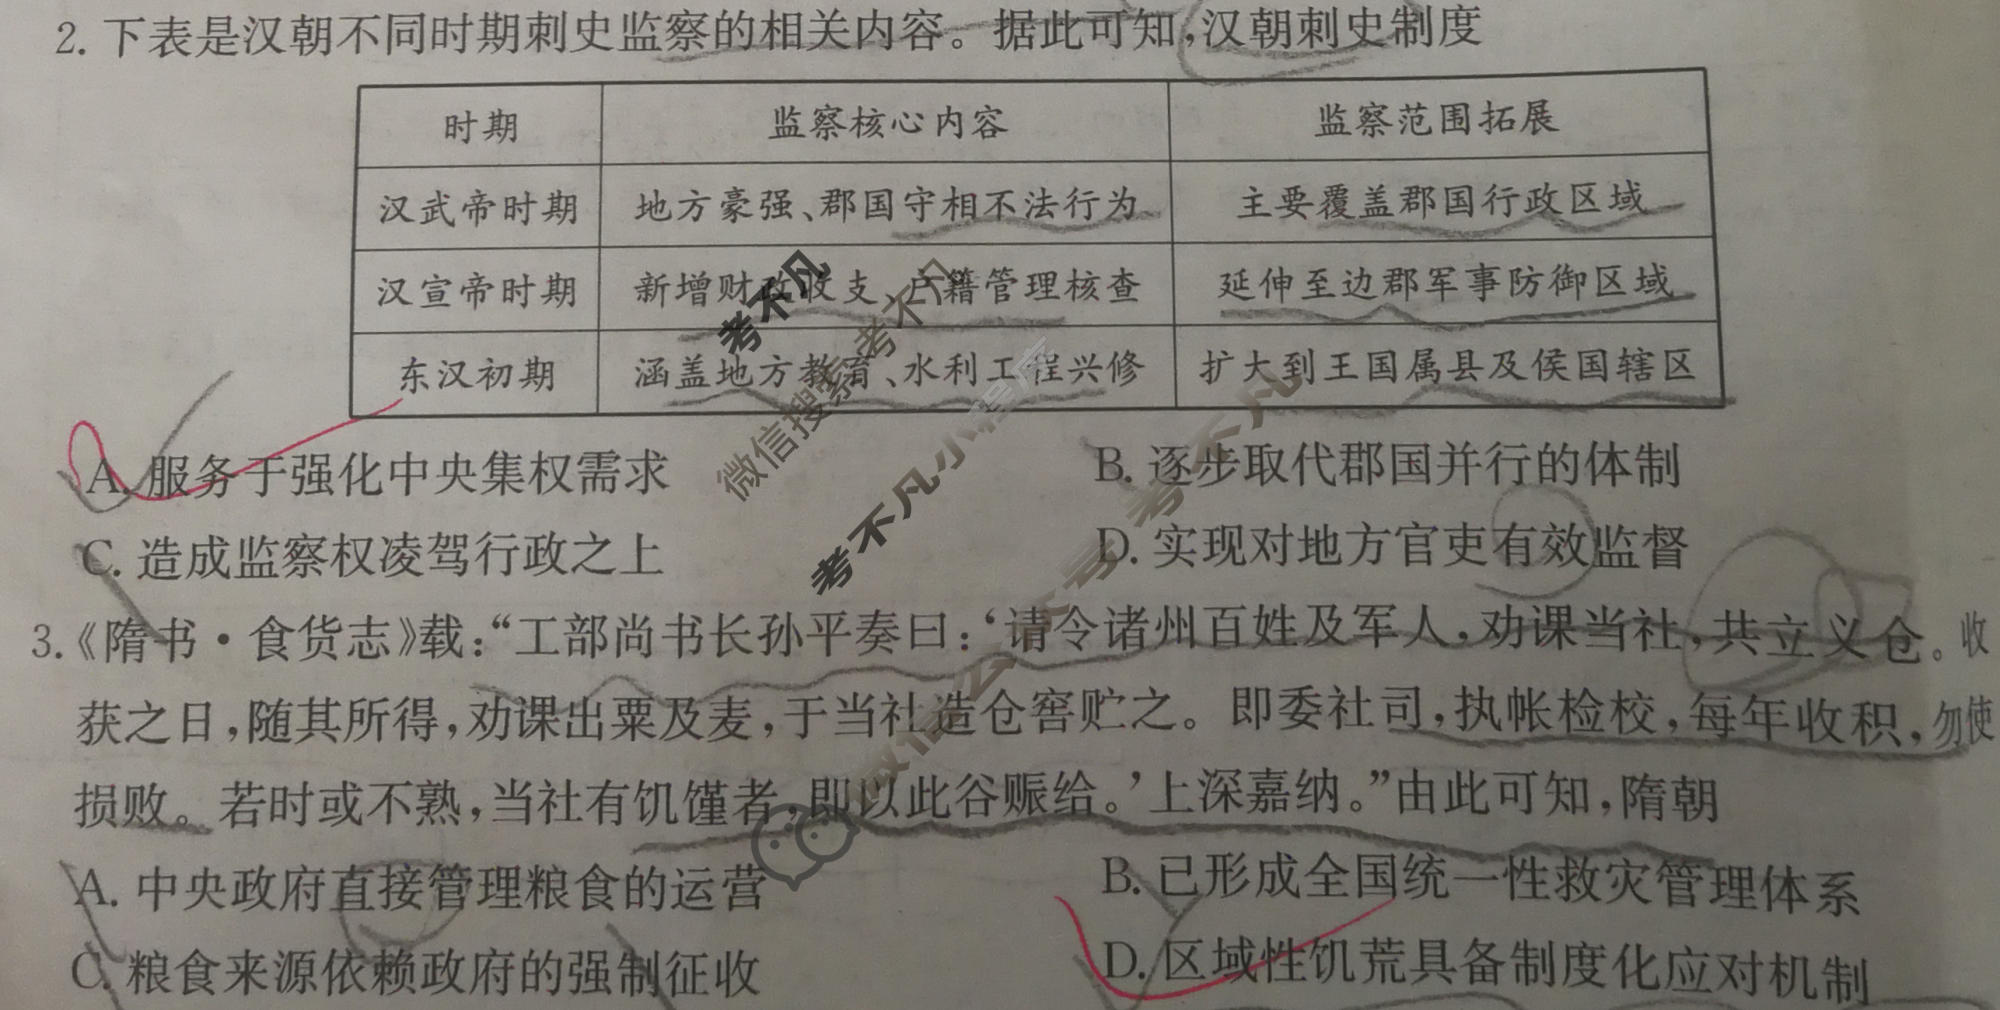 2. 下表是汉朝不同时期刺史监察的相关内容。据此可知，汉朝刺史制度
时期 监察核心内容 监察范围拓展
汉武帝时期 地方豪强、郡国守相不法行为 主要覆盖郡国行政区域
汉宣帝时期 新增财政收支、户籍管理核查 延伸至边郡军事防御区域
东汉初期 涵盖地方教育、水利工程兴修 扩大到王国属县及侯国辖区
A. 服务于强化中央集权需求 B. 逐步取代郡国并行的体制
C. 造成监察权凌驾行政之上 D. 实现对地方官吏有效监督
3.《隋书·食货志》载：“工部尚书长孙平奏曰：‘请令诸州百姓及军人，劝课当社，共立义仓。收
获之日，随其所得，劝课出粟及麦，于当社造仓窖贮之。即委社司，执帐检校，每年收积，勿使
损败。若时或不熟，当社有饥馑者，即以此谷赈给。’上深嘉纳。”由此可知，隋朝
A. 中央政府直接管理粮食的运营 B. 已形成全国统一性救灾管理体系
C. 粮食来源依赖政府的强制征收 D. 区域性饥荒具备制度化应对机制
考不凡
微信搜索 考不凡
考不凡小程序
微信公众号 考不凡